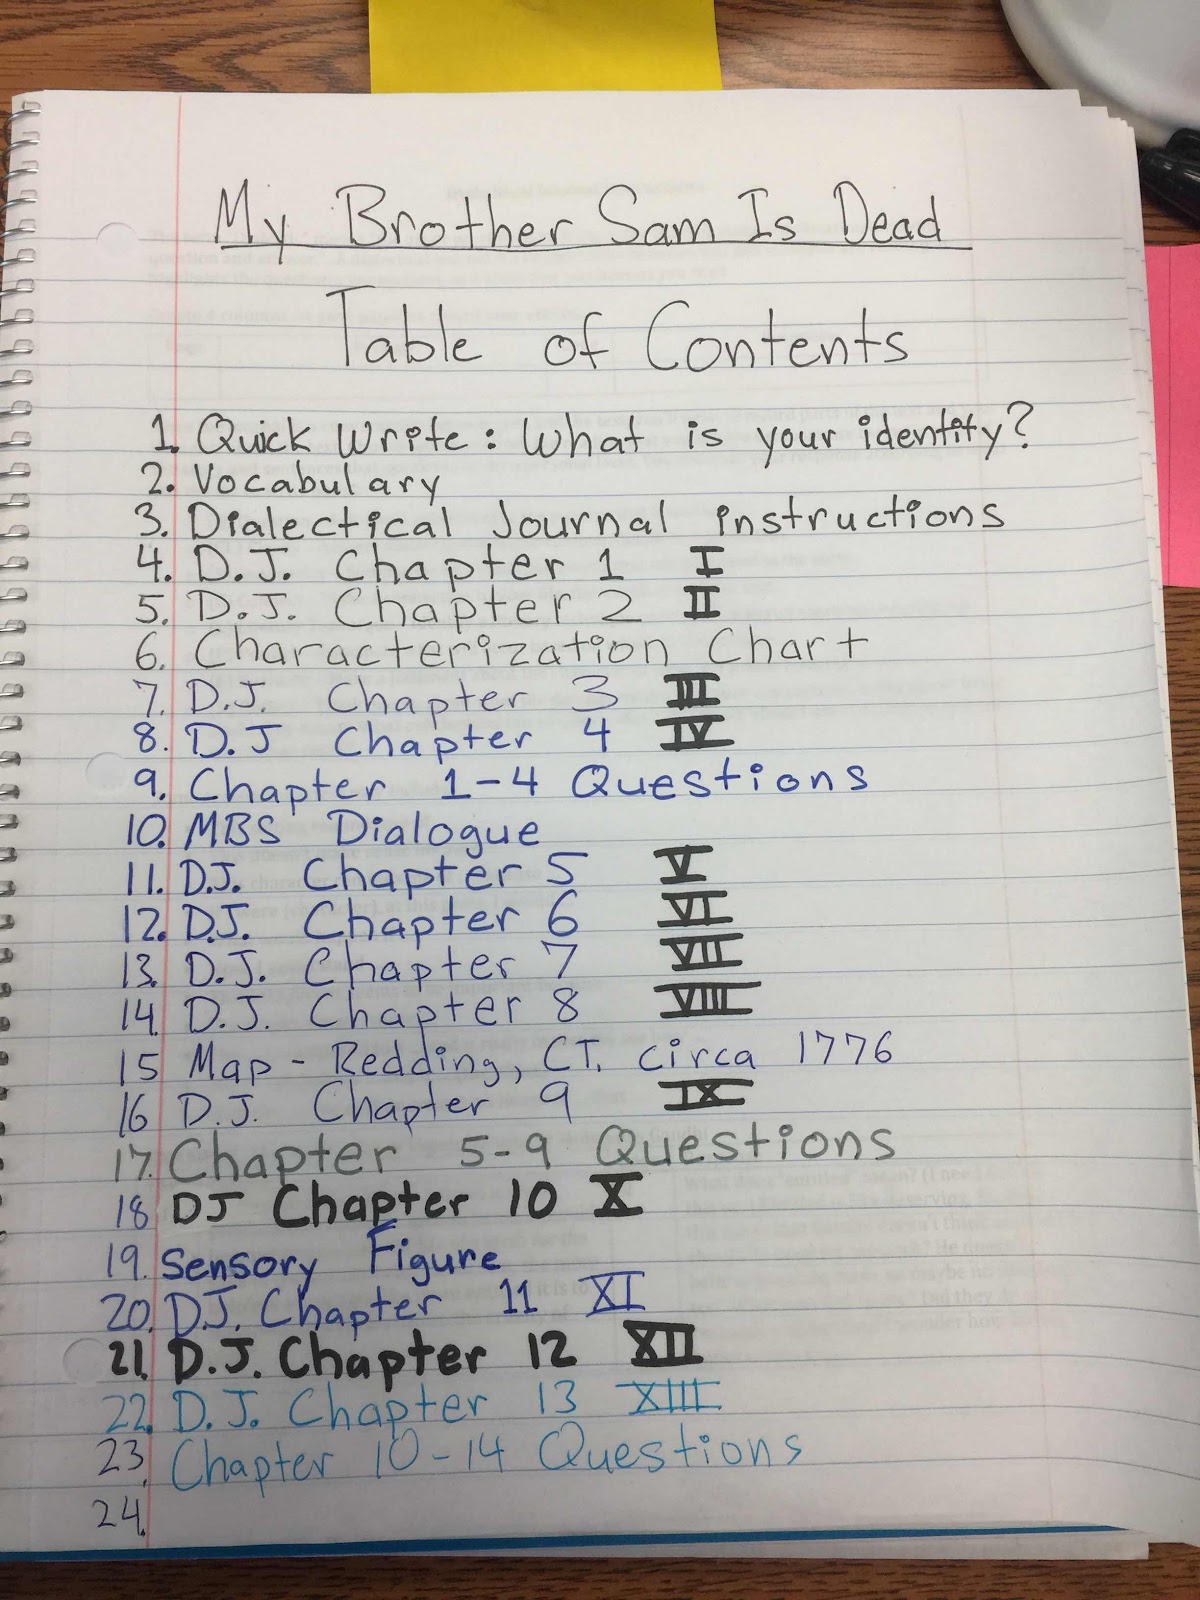 My Brother Sam Is Dead
Table of Contents
1. Quick Write: What is your identity?
2. Vocabulary
3. Dialectical Journal instructions
4. D.J. Chapter 1 I
5. D.J. Chapter 2 II
6. Characterization Chart
7. D.J. Chapter 3 III
8. D.J Chapter 4 IV
9. Chapter 1-4 Questions
10. MBS Dialogue
11. D.J. Chapter 5 V
12. D.J. Chapter 6 VI
13. D.J. Chapter 7 VII
14. D.J. Chapter 8 VIII
15 Map - Redding, CT. circa 1776
16 D.J. Chapter 9 IX
17. Chapter 5-9 Questions
18 DJ Chapter 10 X
19. Sensory Figure
20. DJ. Chapter 11 XI
21. D.J. Chapter 12 XII
22. D.J. Chapter 13 XIII
23. Chapter 10-14 Questions
24.